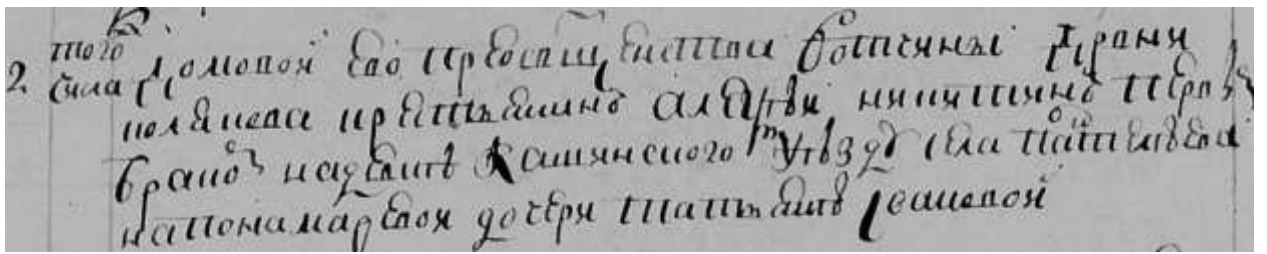 того
2 числа домовой его преосвященства вотчины д Храни
поляцева крестьянинъ Алеѯѣй Никитинъ первы
бракомъ на девкѣ Кашинского уѣзду села Пантелѣева
на понамаревой дочери Татьянѣ Ивановой